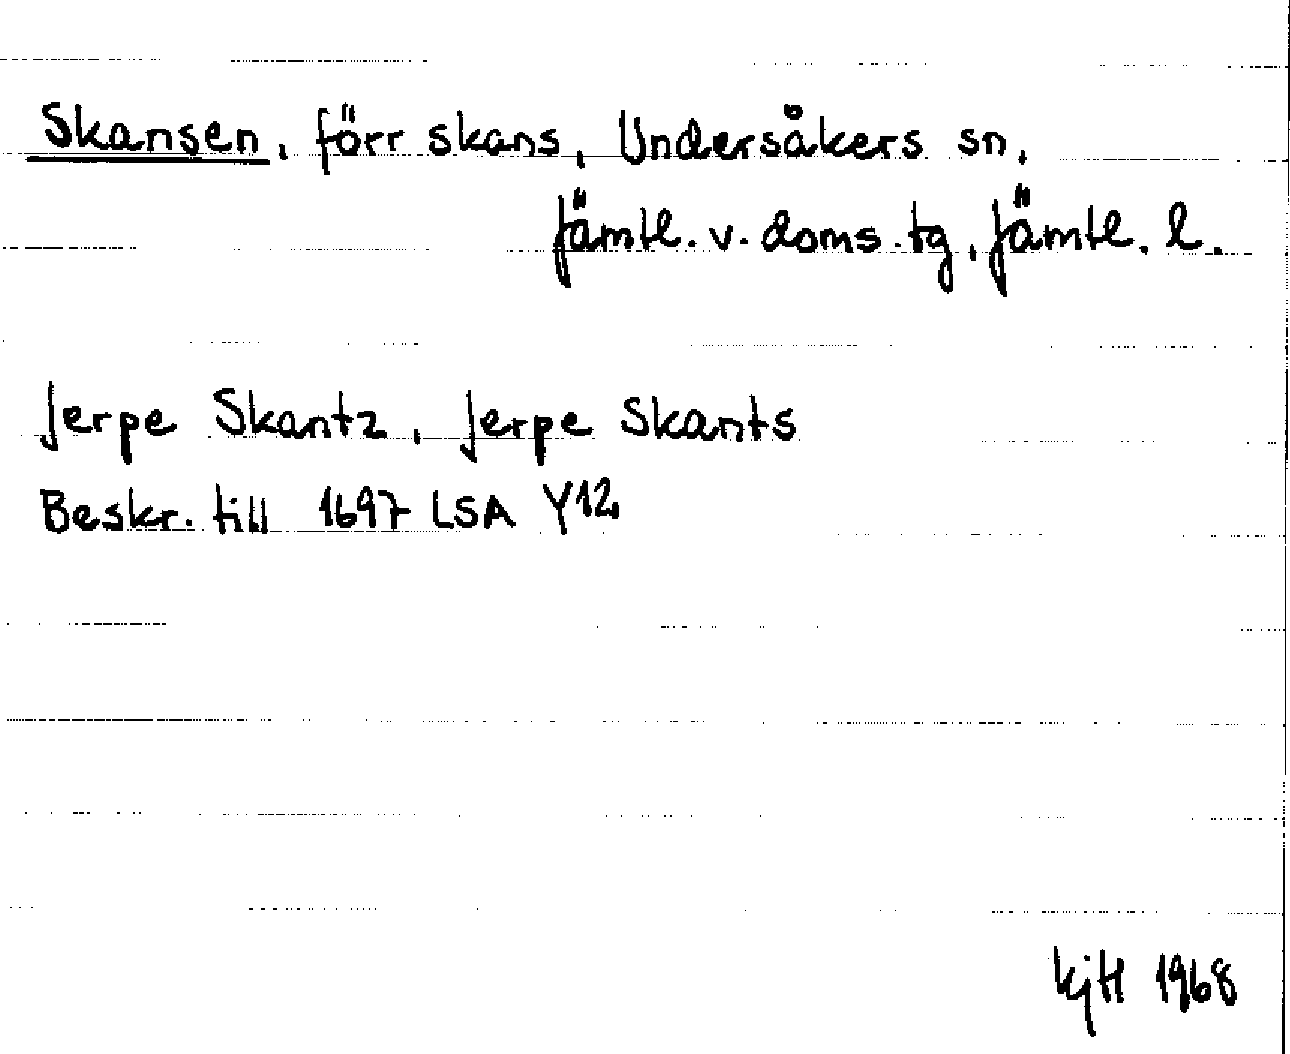 Skansen, förr skans, Undersåkers sn,
Jämtl. v. doms. tg, Jämtl. l.
Jerpe Skantz, Jerpe Skants
Beskr. till 1697 LSA Y12
KjH 1968